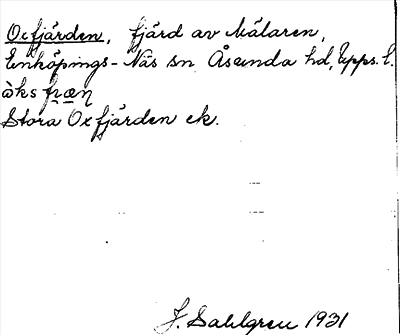 Oxfjärden, fjärd av Mälaren,
Enköpings-Näs sn Åsunda hd, Upps. l.
Stora Oxfjärden ek.
J. Sahlgren 1931